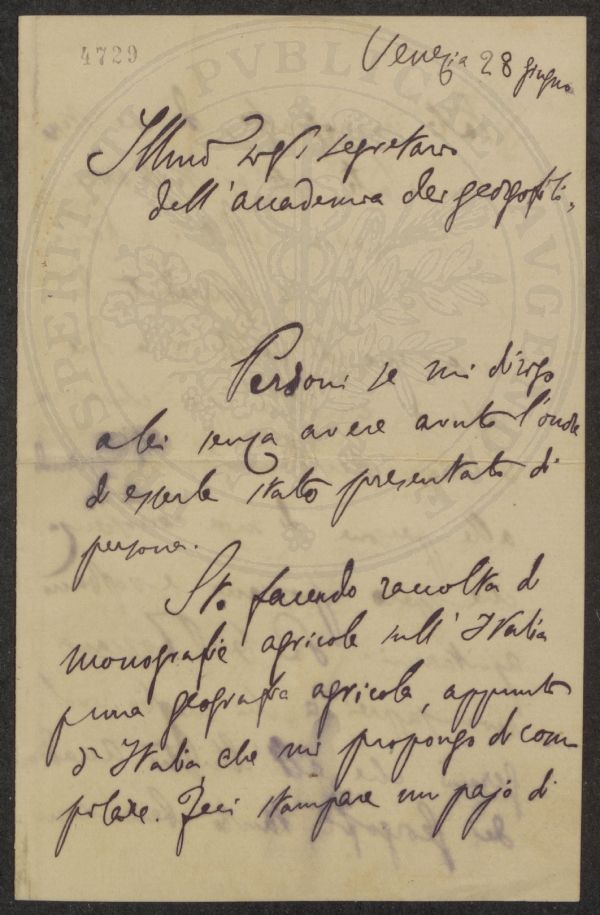 4729
Venezia 28 giugno
Illmo sigr segretario
dell'accademia dei georgofili,
Perdoni se mi dirigo
a lei senza avere avuto l'onore
di esserle stato presentato di
persona.
Sto facendo raccolta di
monografie agricole sull'Italia
p una geografia agricola, appunto
d'Italia, che mi propongo di com
pilare. Feci stampare un pajo di
PROSPERITATI PUBLICAE AUGENDAE